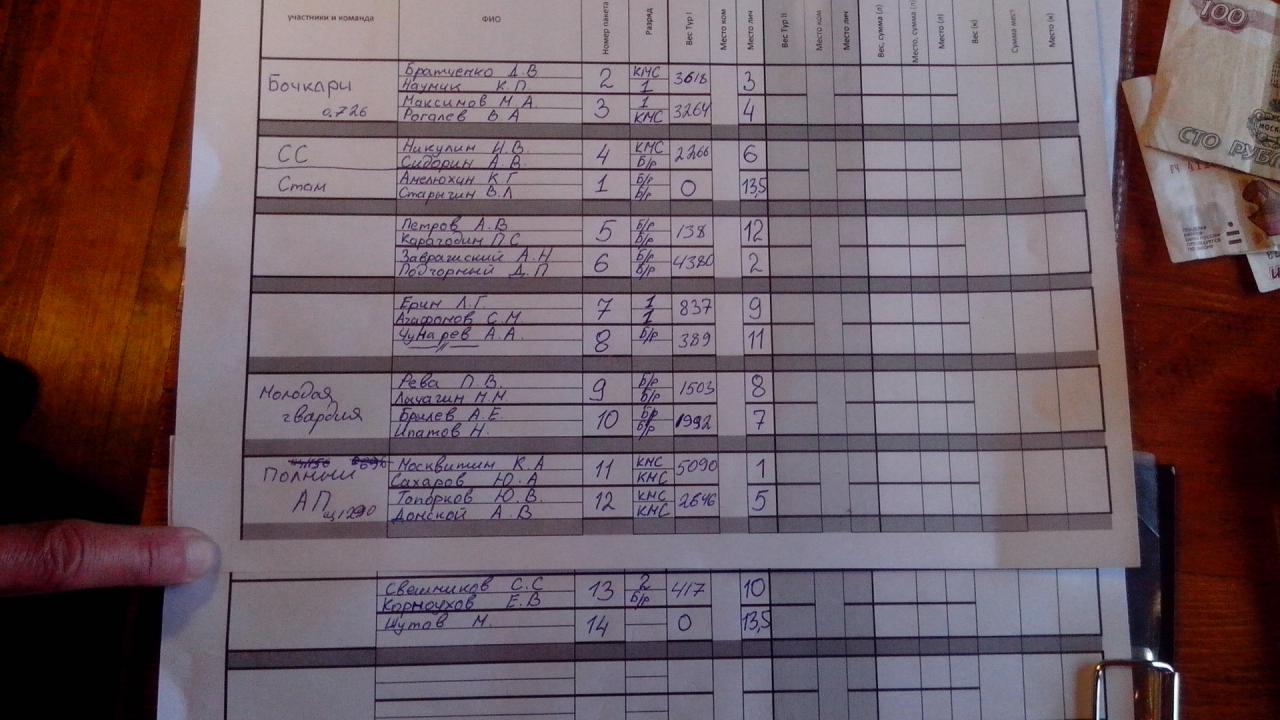 участники и команда ФИО Номер пакета Разряд Вес Тур I Место ком Место лич Вес Тур II Место ком Место лич Вес, сумма (л) Место, сумма (л) Место (л) Вес (к) Сумма мест Место (к)
Бочкари 0.726
Братченко А.В 2 КМС 3618 3
Наумик К.П. 1
Максимов М А. 3 1 3264 4
Рогалев В А КМС
СС
Никулин И.В. 4 КМС 2266 6
Сидорин А.В. Б/р
Стам
Амелюхин К.Г 1 Б/р 0 13,5
Старыгин В.Л Б/р
Петров А.В 5 Б/р 138 12
Карагодин П.С Б/р
Завражский А.Н 6 Б/р 4380 2
Подгорный Д.П Б/р
Ерин Л.Г. 7 1 837 9
Агафонов С.М. 1
Чунарев А.А. 8 Б/р 389 11
Молодая гвардия
Рева П.В. 9 Б/р 1503 8
Лычагин Н.Н. Б/р
Брилев А.Е. 10 Б/р 1992 7
Ипатов Н. Б/р
Полный АП
Москвитин К.А 11 КМС 5090 1
Сахаров Ю.А КМС
Топорков Ю.В. 12 КМС 2646 5
Донской А.В КМС
Свешников С.С 13 2 417 10
Корноухов Е.В Б/р
Шутов М. 14 0 13,5
100
СТО РУБ